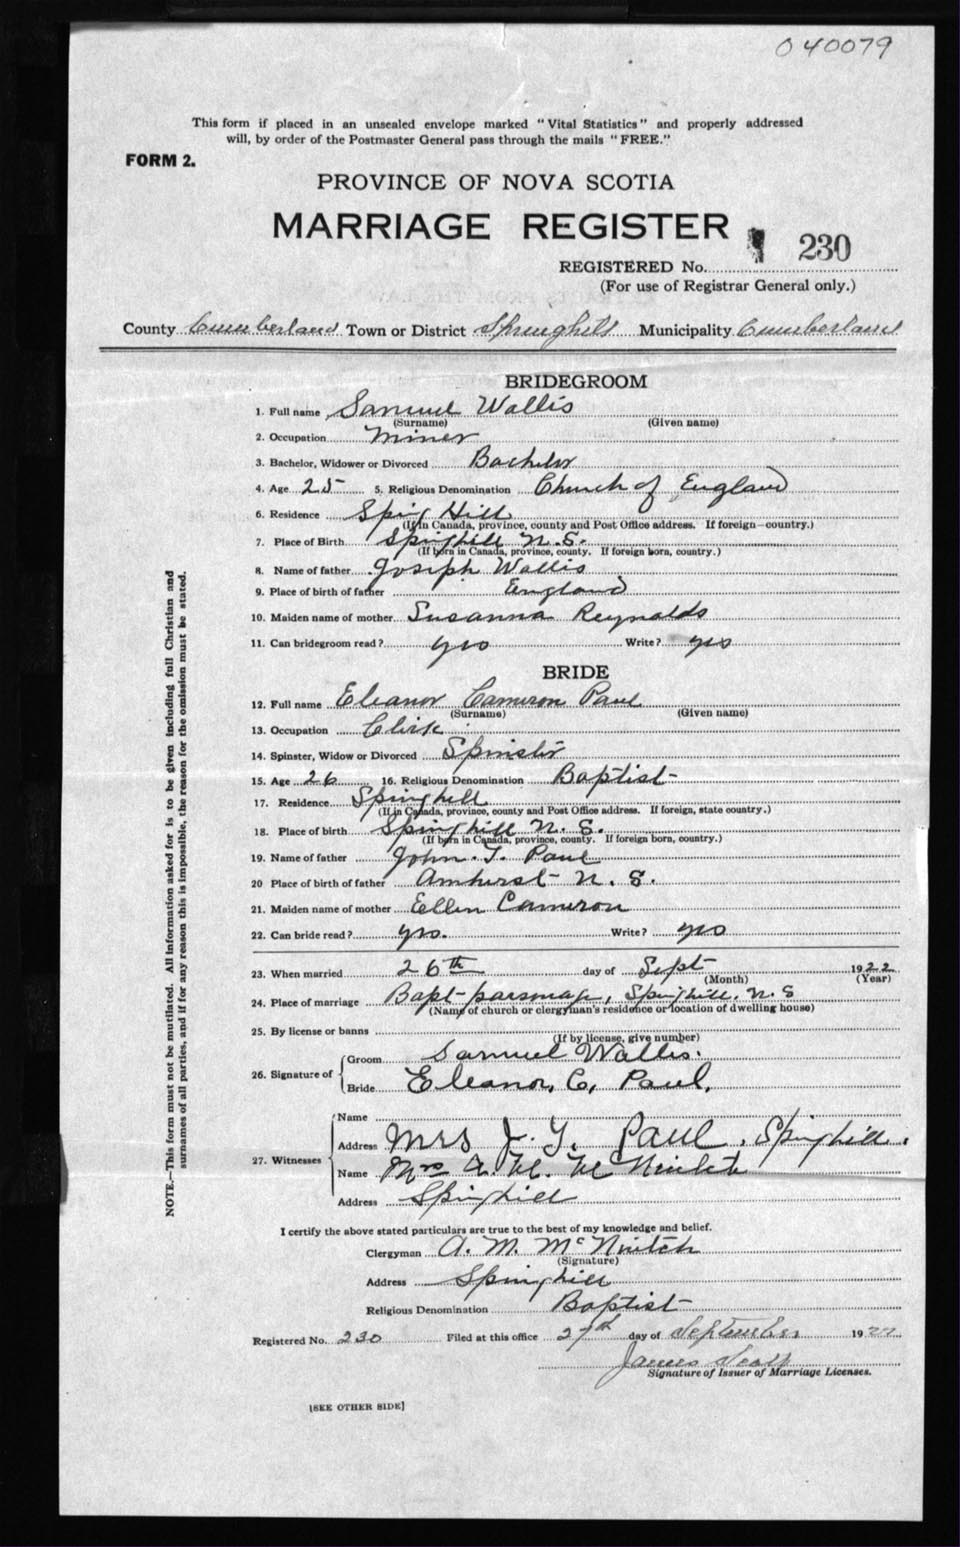 040079
This form if placed in an unsealed envelope marked "Vital Statistics" and properly addressed
will, by order of the Postmaster General pass through the mails "FREE."
FORM 2.
PROVINCE OF NOVA SCOTIA
MARRIAGE REGISTER
REGISTERED No. 230
(For use of Registrar General only.)
County Cumberland Town or District Springhill Municipality Cumberland
BRIDEGROOM
1. Full name Samuel Wallis
(Surname) (Given name)
2. Occupation Miner
3. Bachelor, Widower or Divorced Bachelor
4. Age 25 5. Religious Denomination Church of England
6. Residence Spring Hill
(If in Canada, province, county and Post Office address. If foreign—country.)
7. Place of Birth Springhill N.S.
(If born in Canada, province, county. If foreign born, country.)
8. Name of father Joseph Wallis
9. Place of birth of father England
10. Maiden name of mother Susanna Reynolds
11. Can bridegroom read? yes Write? yes
BRIDE
12. Full name Eleanor Cameron Paul
(Surname) (Given name)
13. Occupation Clerk
14. Spinster, Widow or Divorced Spinster
15. Age 26 16. Religious Denomination Baptist
17. Residence Springhill
(If in Canada, province, county and Post Office address. If foreign, state country.)
18. Place of birth Springhill N. S.
(If born in Canada, province, county. If foreign born, country.)
19. Name of father John. T. Paul
20 Place of birth of father Amherst N. S.
21. Maiden name of mother Ellen Cameron
22. Can bride read? yes. Write? yes
23. When married 26th day of Sept 1922
(Month) (Year)
24. Place of marriage Bapt-parsonage, Springhill, N.S
(Name of church or clergyman's residence or location of dwelling house)
25. By license or banns
(If by license, give number)
26. Signature of Groom Samuel Wallis.
Bride Eleanor, C, Paul,
27. Witnesses Name
Address Mrs J. T. Paul, Springhill.
Name Mrs A. M. McNintch
Address Springhill
I certify the above stated particulars are true to the best of my knowledge and belief.
Clergyman A. M. McNintch
(Signature)
Address Springhill
Religious Denomination Baptist
Registered No. 230 Filed at this office 27th day of September 1922
James Scott
Signature of Issuer of Marriage Licenses.
[SEE OTHER SIDE]
NOTE.—This form must not be mutilated. All information asked for is to be given including full Christian and
surnames of all parties, and if for any reason this is impossible, the reason for the omission must be stated.